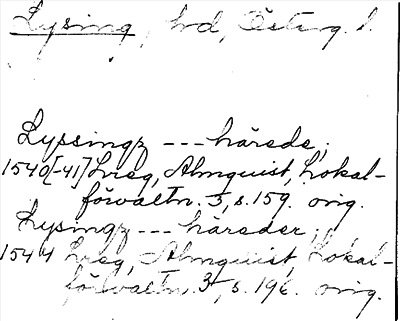 Lysing, hrd, Österg. l.
Lyssingz --- härede,
1540[-41] Lreg, Almquist, Lokal-
förvaltn. 3, s. 159. orig.
Lysingz --- häreder,
1544 Lreg, Almquist, Lokal-
förvaltn. 3, s. 196. orig.